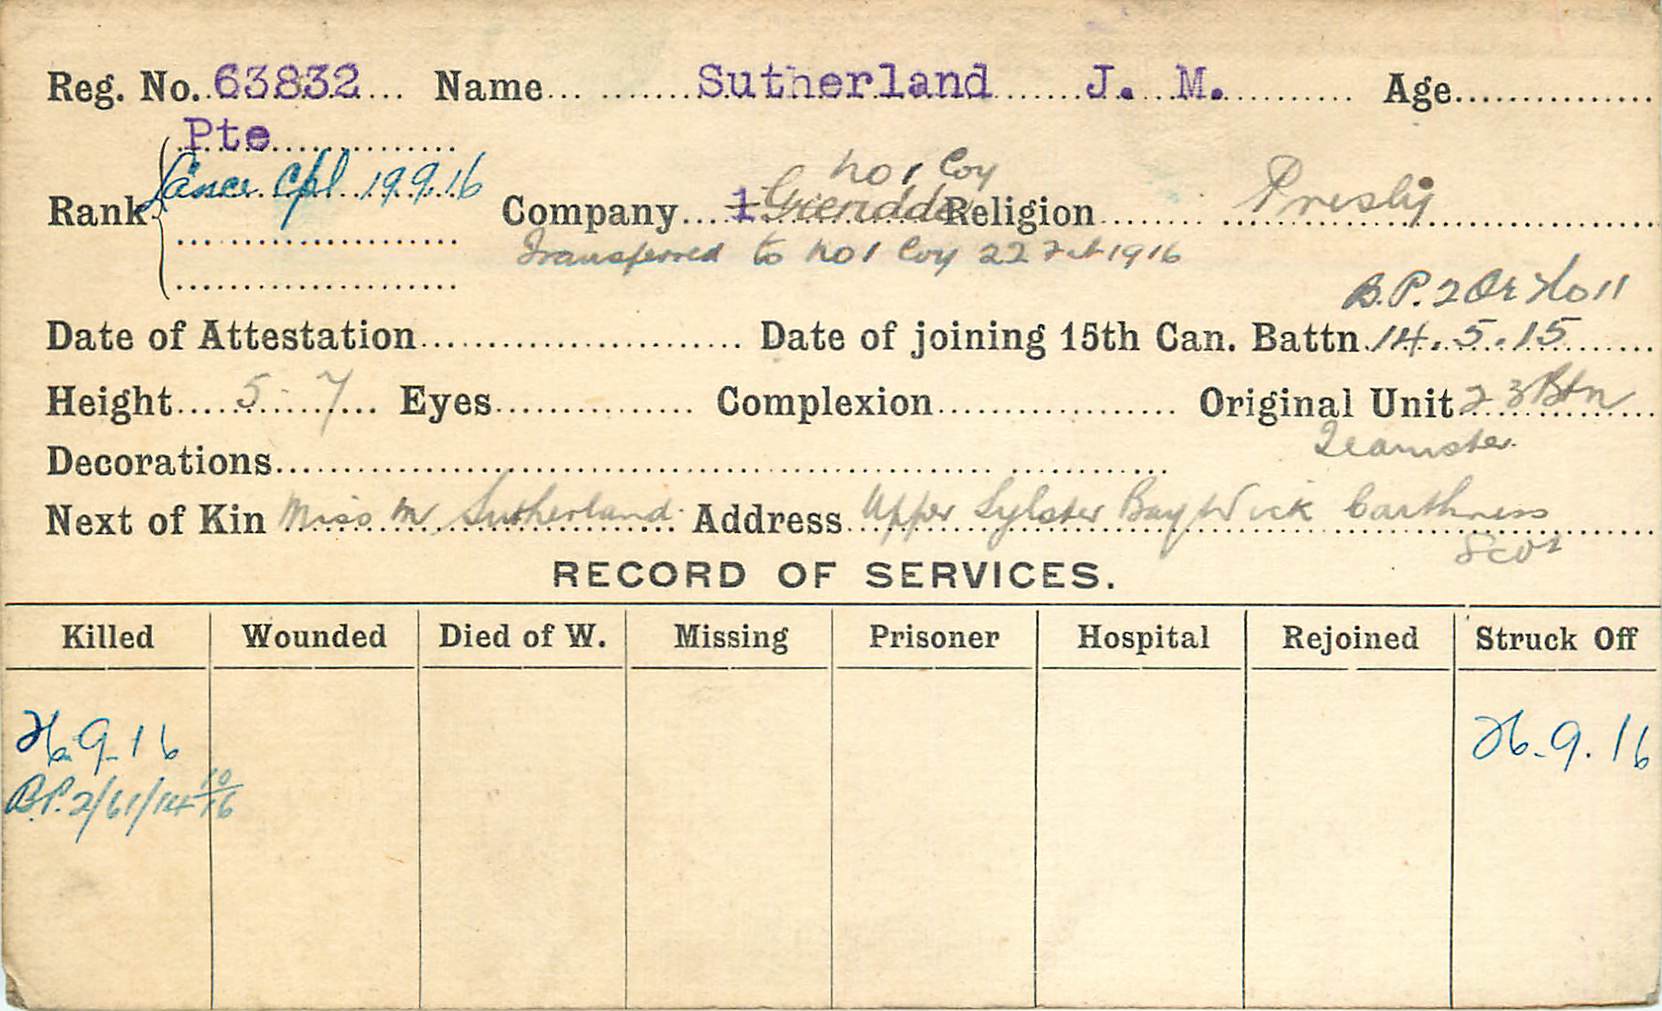 Reg. No. 63832 Name Sutherland J. M. Age
Pte
Lance Cpl 19.9.16
No 1 Coy
Rank Company 1 Religion Presby
Transferred to No 1 Coy 22 Feb 1916
B.P. 2 Or No 11
Date of Attestation Date of joining 15th Can. Battn 14.5.15
Height 5-7 Eyes Complexion Original Unit 23 Btn
Decorations Teamster
Next of Kin Miss M Sutherland Address Upper Lylster Bay Wick Caithness
Scot
RECORD OF SERVICES.
Killed Wounded Died of W. Missing Prisoner Hospital Rejoined Struck Off
26.9.16 26.9.16
B.P. 2/61/14 10/16